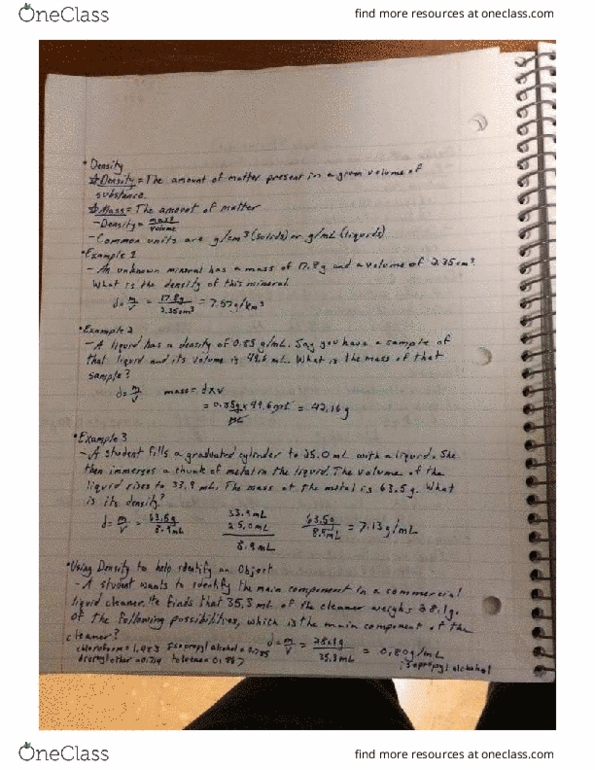 OneClass
find more resources at oneclass.com
• Density
Density = The amount of matter present in a given volume of
substance.
Mass = The amount of matter
- Density = mass/volume
- Common units are g/cm³ (solids) or g/mL (liquids)
• Example 1
- An unknown mineral has a mass of 17.8g and a volume of 2.35cm³.
What is the density of this mineral
d = m/v = 17.8g/2.35cm³ = 7.57g/km³
• Example 2
- A liquid has a density of 0.85 g/mL. Say you have a sample of
that liquid and its volume is 49.6 mL. What is the mass of that
sample?
d = m/v mass = d x v
= 0.85g/mL x 49.6 mL = 42.16 g
• Example 3
- A student fills a graduated cylinder to 25.0 mL with a liquid. She
then immerses a chunk of metal in the liquid. The volume of the
liquid rises to 33.9 mL. The mass of the metal is 63.5g. What
is its density?
d = m/v = 63.5g/8.9mL 33.9mL 63.5g = 7.13g/mL
25.0mL
8.9mL
• Using Density to help identify an Object
- A student wants to identify the main component in a commercial
liquid cleaner. He finds that 35.8 mL of the cleaner weighs 28.1g.
Of the following possibilities, which is the main component of the
cleaner?
chloroform = 1.483 Isopropyl alcohol = 0.785 d = m/v = 28.1g/35.8mL = 0.80g/mL
toluene = 0.867 isopropyl alcohol
OneClass
find more resources at oneclass.com